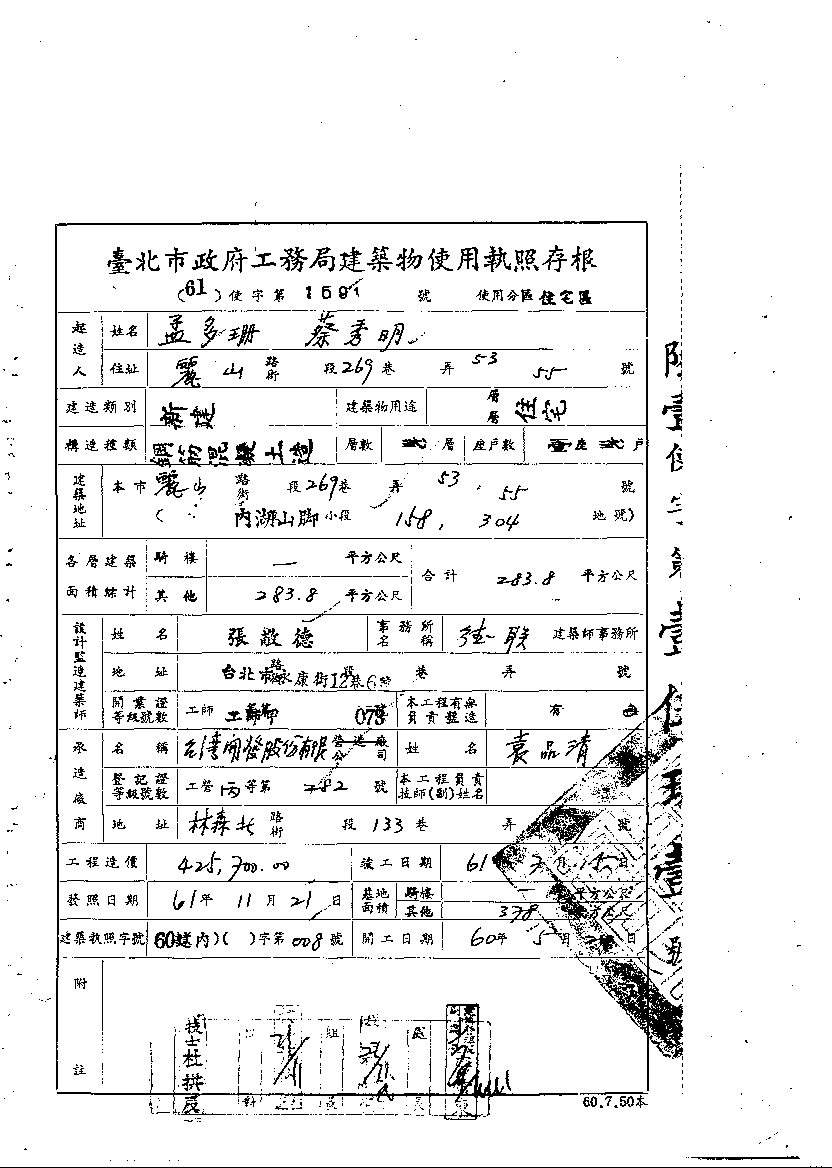 臺北市政府工務局建築物使用執照存根
(61)使字第1591號 使用分區 住宅區
起造人 姓名 孟多珊 蔡秀明
住址 麗山 路街 段269巷 弄53 55號
建造類別 新建 建築物用途 層層 住宅
構造種類 鋼筋混凝土造 層數 貳層 座戶數 壹座貳戶
建築地址 本市麗山 路街 段269巷 弄53,55號
( 內湖山腳小段 158,304 地號)
各層建築面積綜計 騎樓 — 平方公尺 合計 283.8 平方公尺
其他 283.8 平方公尺
設計監造建築師 姓名 張敬德 事務所名稱 建築師事務所
地址 台北市永康街12巷6號 段 巷 弄 號
開業證等級號數 工師 073 本工程有無負責監造 有
承造廠商 名稱 台灣開發股份有限公司 營造廠 姓名 袁品清
登記證等級號數 工營丙等第282號 本工程負責技師(副)姓名
地址 林森北 路街 段133巷 弄 號
工程造價 425,700.00 竣工日期 61年7月15日
發照日期 61年11月21日 基地面積 騎樓 — 平方公尺
其他 378 平方公尺
建築執照字號 60建(內)( )字第008號 開工日期 60年5月 日
附註
技士杜拱辰
60.7.50本